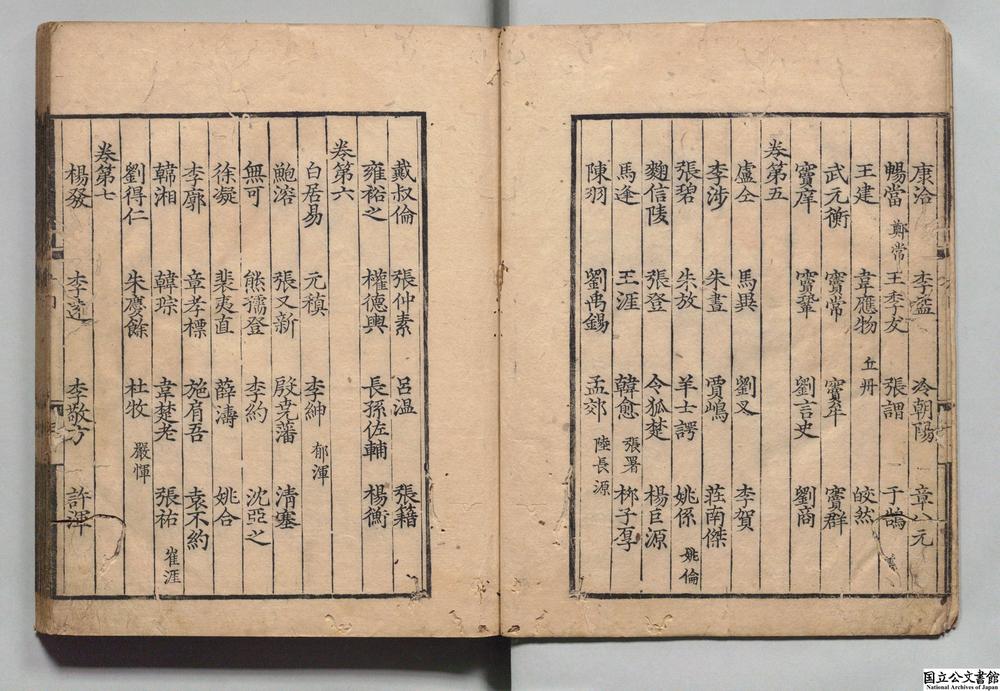 康洽 李盈 冷朝陽 章八元
暢當 鄭常 王季友 張謂 于鵠
王建 韋應物 丘丹 皎然
武元衡 竇常 竇牟 竇群
竇庠 竇鞏 劉言史 劉商
卷第五
盧仝 馬異 劉叉 李賀
李涉 朱晝 賈嵨 莊南傑
張碧 朱放 羊士諤 姚係 姚倫
麴信陵 張登 令狐楚 楊巨源
馬逢 王涯 韓愈 張署 栁子厚
陳羽 劉禹錫 孟郊 陸長源
戴叔倫 張仲素 呂溫 張籍
雍裕之 權德輿 長孫佐輔 楊衡
卷第六
白居易 元稹 李紳 郁渾
鮑溶 張又新 殷堯藩 清塞
無可 熊孺登 李約 沈亞之
徐凝 裴夷直 薛濤 姚合
李廓 章孝標 施肩吾 袁不約
韓湘 韓琮 韋楚老 張祜 崔涯
劉得仁 朱慶餘 杜牧 嚴惲
卷第七
楊發 李遠 李敬方 許渾
国立公文書館
National Archives of Japan